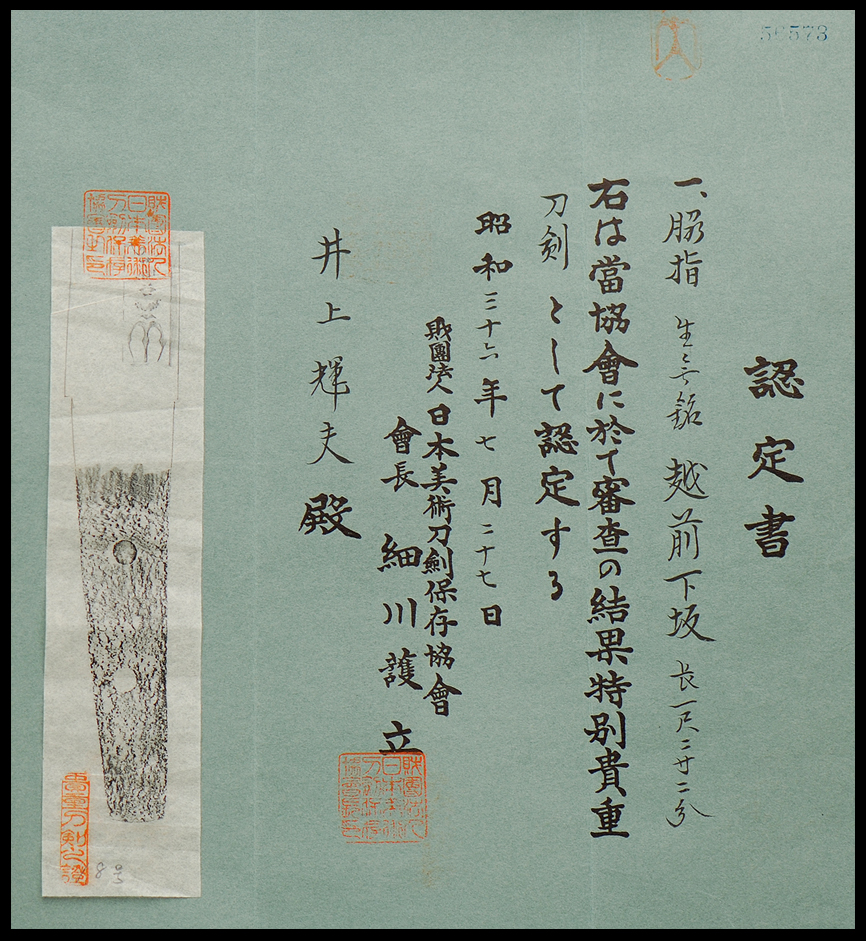 56573
認定書
一、脇指 生無銘 越前下坂 長一尺二寸二分
右は當協會に於て審査の結果特別貴重
刀剣として認定する
昭和三十六年七月二十七日
財團法人日本美術刀劍保存協會
會長 細川護立
井上輝夫殿
財團法人日本美術刀劍保存協會之印
財團法人日本美術刀劍保存協會長印
貴重刀剣之證
8号